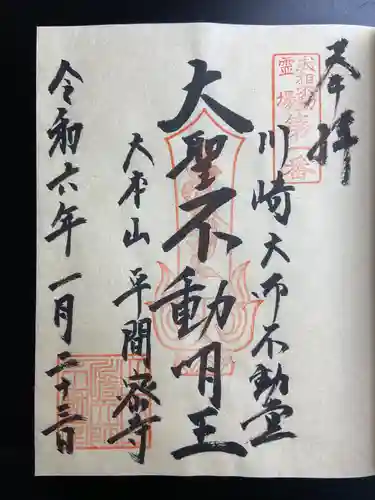 奉拝
武相不動
霊場第一番
川崎大師不動堂
大聖不動明王
大本山平間寺
令和六年一月二十三日